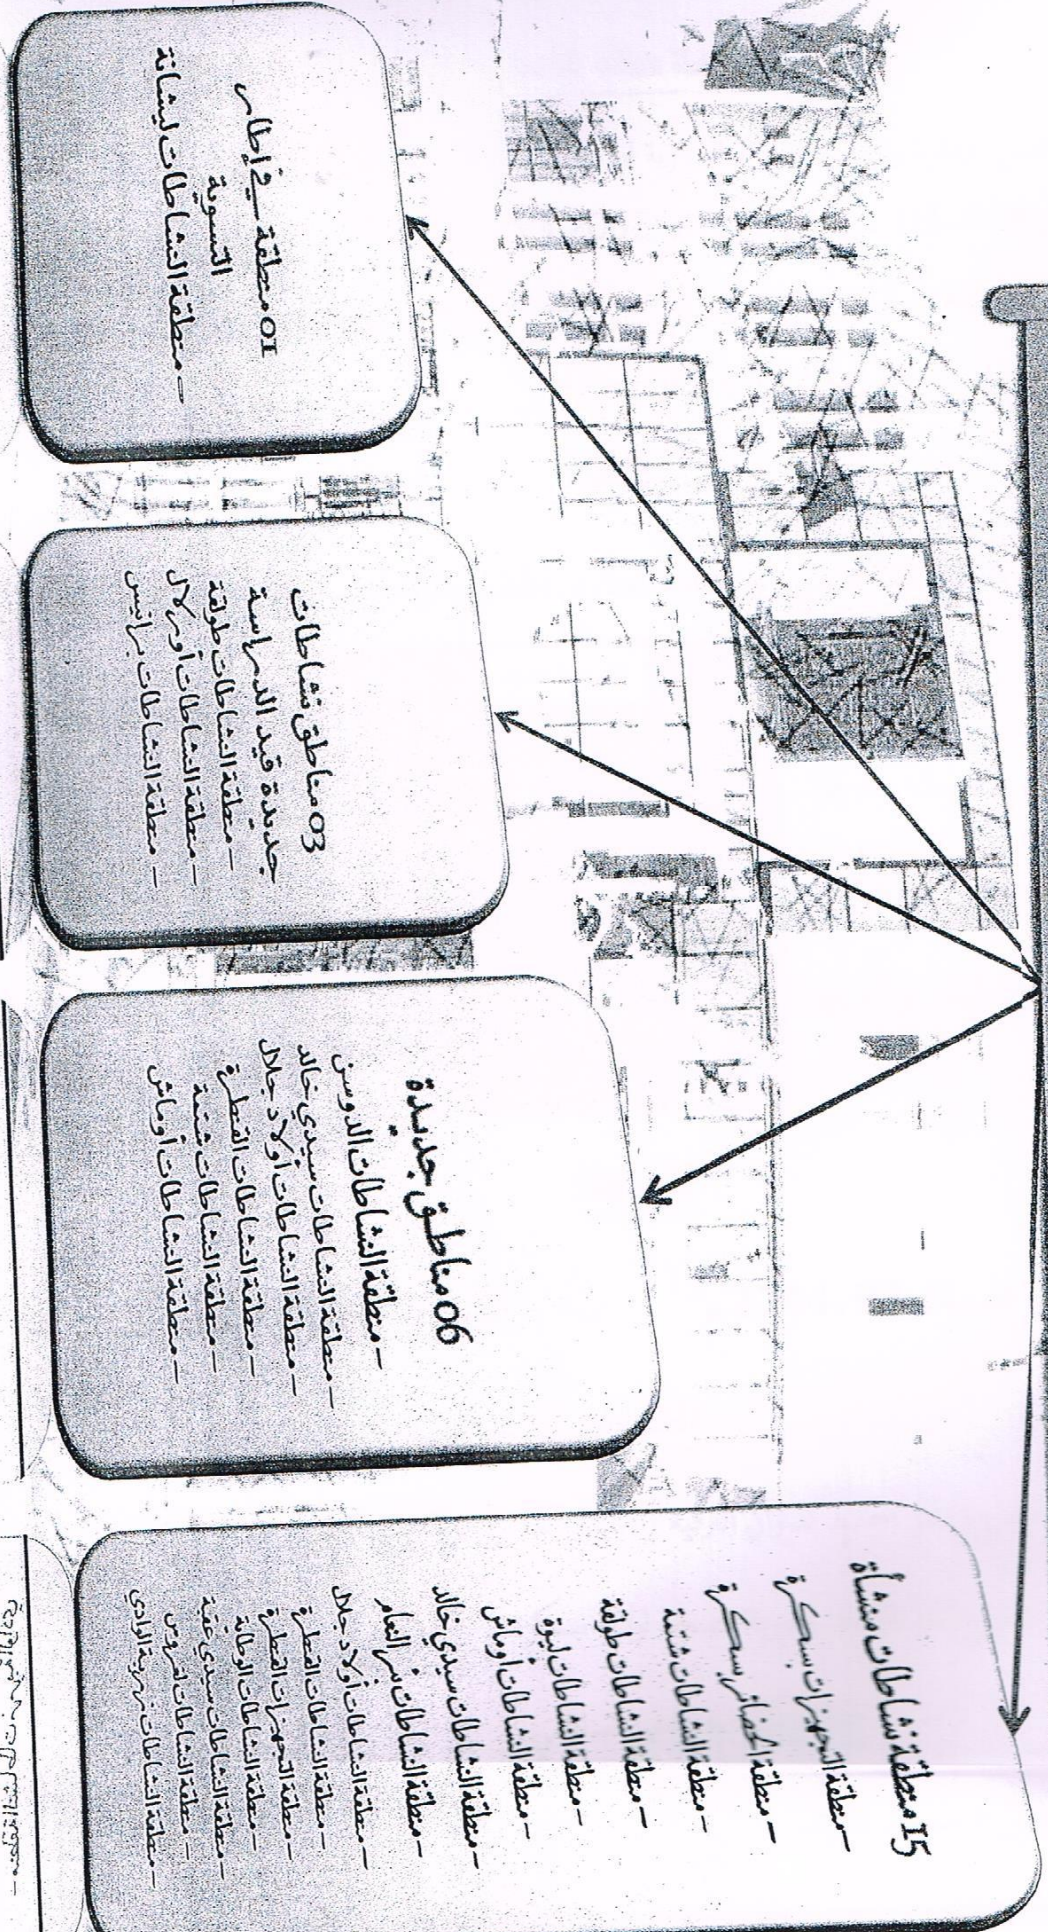 15 منطقة نشاطات منشأة
– منطقة التجهيزات بسكرة
– منطقة الحظائر بسكرة
– منطقة النشاطات شتمة
– منطقة النشاطات طولقة
– منطقة النشاطات ليوة
– منطقة النشاطات أوماش
– منطقة النشاطات سيدي خالد
– منطقة النشاطات
– منطقة النشاطات أولاد جلال
– منطقة النشاطات القنطرة
– منطقة التجهيزات القنطرة
– منطقة النشاطات الوطاية
– منطقة النشاطات سيدي عقبة
– منطقة النشاطات
– منطقة النشاطات زريبة الوادي
06 مناطق جديدة
– منطقة النشاطات الدوسن
– منطقة النشاطات سيدي خالد
– منطقة النشاطات أولاد جلال
– منطقة النشاطات القنطرة
– منطقة النشاطات شتمة
– منطقة النشاطات أوماش
03 مناطق نشاطات
جديدة قيد الدراسة
– منطقة النشاطات طولقة
– منطقة النشاطات أورلال
– منطقة النشاطات برانيس
01 منطقة في إطار
التسوية
– منطقة النشاطات ليشانة